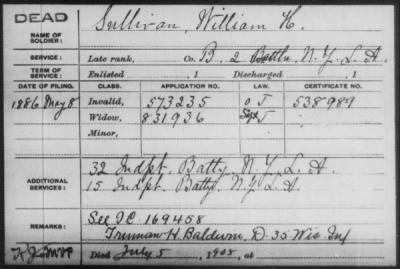 DEAD
NAME OF SOLDIER: Sullivan, William H.
SERVICE: Late rank, Co. B, 2 Battln. N.Y. L. A.
TERM OF SERVICE: Enlisted , 1 Discharged , 1
DATE OF FILING. CLASS. APPLICATION NO. LAW. CERTIFICATE NO.
1886 May 8 Invalid, 573235 538989
Widow, 831936
Minor,
ADDITIONAL SERVICES: 32 Indpt. Batty. N.Y. L. A.
15 Indpt. Batty. N.Y. L. A.
REMARKS: See I C. 169458
Truman H. Baldwin, D. 35 Wis Inf
Died July 5 , 1908, at